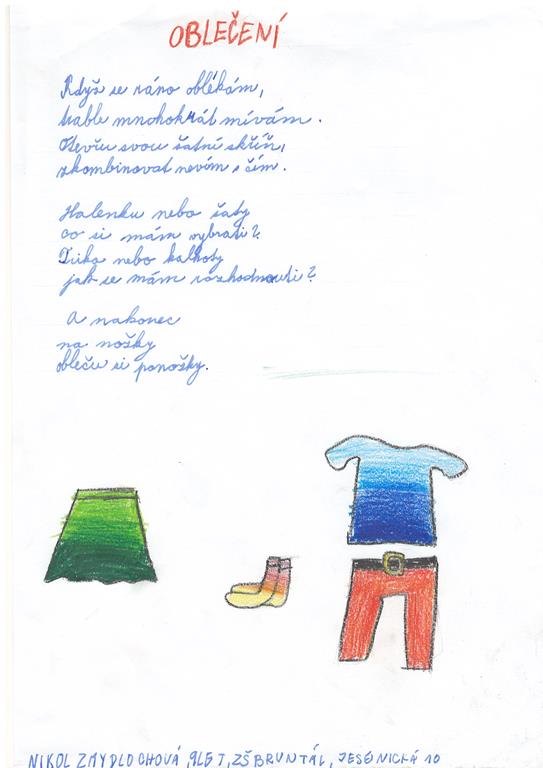 OBLEČENÍ
Když se ráno oblékám,
trable mnohokrát mívám.
Otevřu svou šatní skříň,
zkombinovat nevím s čím.
Halenku nebo šaty
co si mám vybrati?
Triko nebo kalhoty
jak se mám rozhodnouti?
A nakonec
na nožky
obleču si ponožky.
NIKOL ZMYDLOCHOVÁ, 9LET, ZŠ BRUNTÁL, JESENICKÁ 10